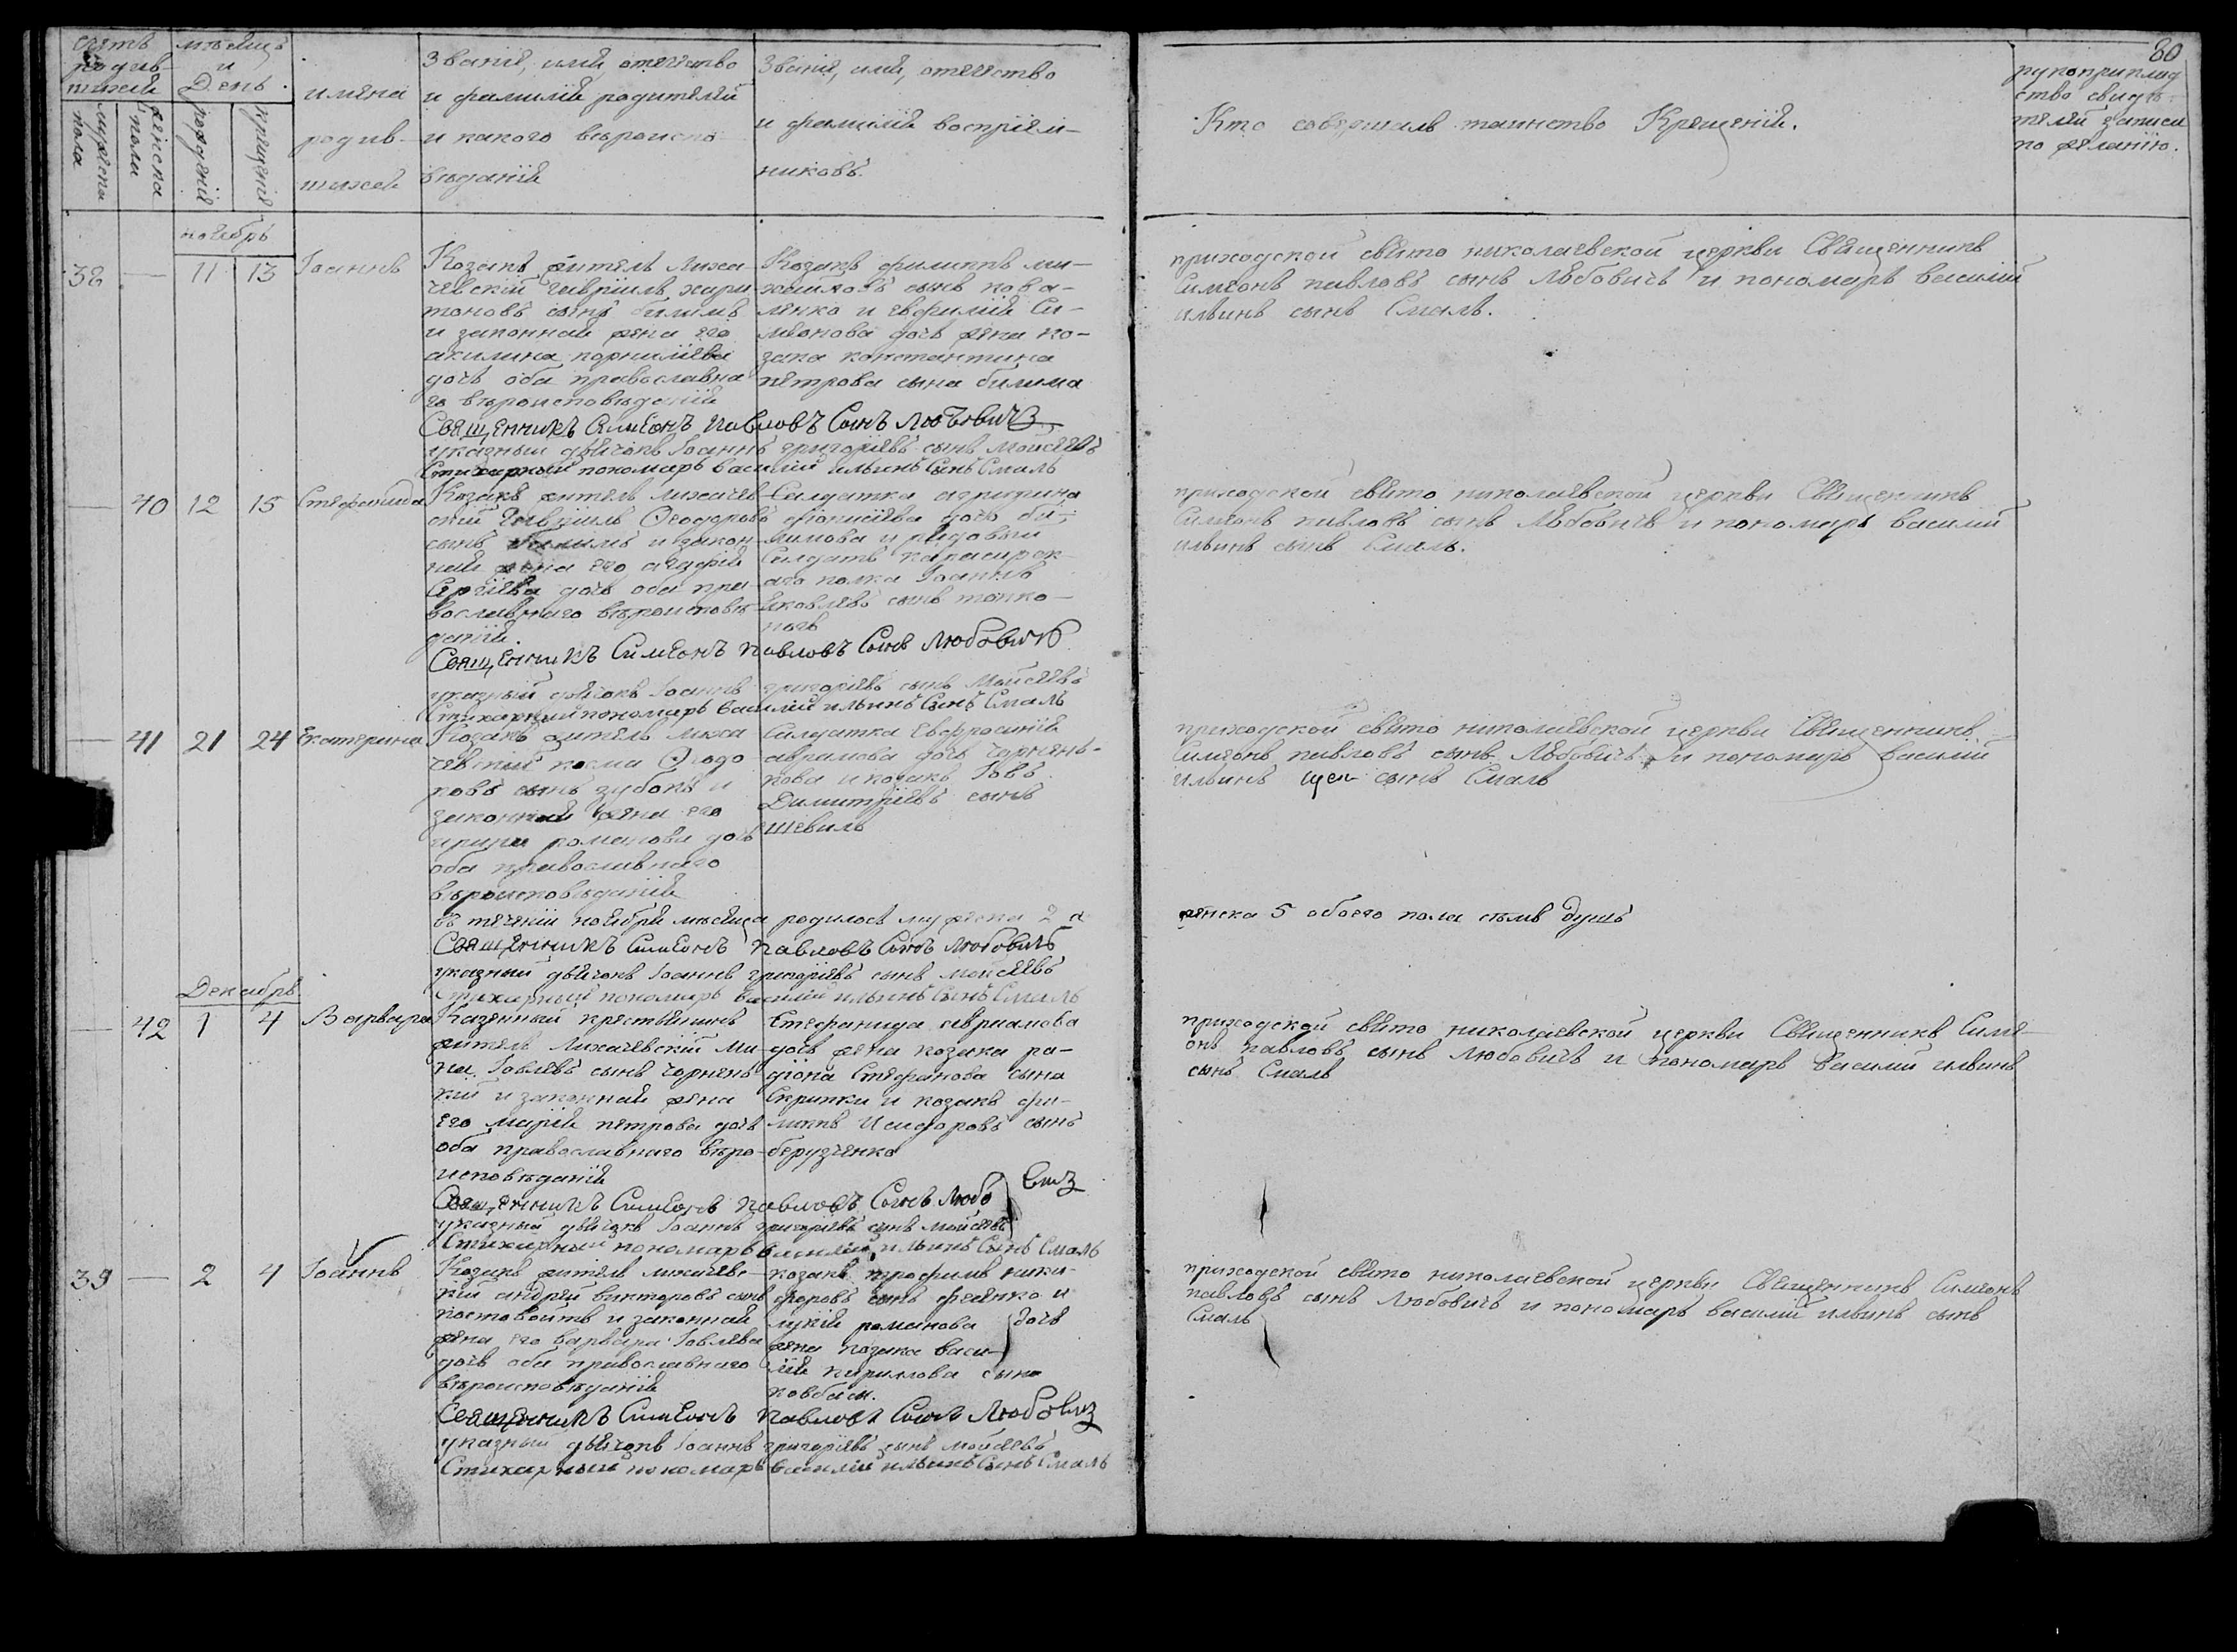 80
счетъ родив-шихся
мѣсяцъ и День.
имена родив-шихся
Званіе, имя, отечество и фамилія родителей и какого вѣроиспо-вѣданія
Званіе, имя, отечество и фамилія воспріем-никовъ.
Кто совершалъ таинство Крещенія.
рукоприклад
ство свидѣ-
телей записи
по желанію.
мужеска пола
женска пола
рожденія
крещенія
ноябрь
38 — 11 13 Іоаннъ
Козакъ житель лиха-
чевскій гавріилъ хари-
тоновъ сынъ билимъ
и законная жена его
акилина корниліева
дочь оба православна
го вѣроисповѣданія
Козакъ филиппъ ми-
хайловъ сынъ кова-
ленко и евфимія Си-
меонова дочь жена ко-
зака константина
петрова сына билима
приходской свято николаевской церкви Священникъ
Симеонъ павловъ сынъ Любовичъ и пономарь василій
ильинъ сынъ Смаль.
Священникъ Симеонъ Павловъ Сынъ Любовичъ
указный дьячокъ Іоаннъ григоріевъ сынъ Мойсеевъ
Стихарный пономарь василій ильинъ Сынъ Смаль
— 40 12 15 Стефанида
Козакъ житель лихачев-
скій Гавріилъ Ѳеодоровъ
сынъ билимъ и закон-
ная жена его агафія
Сергіева дочь оба пра-
вославнаго вѣроисповѣ-
данія.
Салдатка агрипина
діонисіева дочь би-
лимова и рядовый
Салдатъ
аго полка Іоаннъ
Яковлевъ сынъ тонко-
ногъ
приходской свято николаевской церкви Священникъ
Симеонъ павловъ сынъ Любовичъ и пономарь василій
ильинъ сынъ Смаль.
Священникъ Симеонъ Павловъ Сынъ Любовичъ
указный дьячокъ Іоаннъ григоріевъ сынъ Мойсеевъ
Стихарный пономарь василій ильинъ Сынъ Смаль
— 41 21 24 Екатерина
Козакъ житель лиха
чевскій косма Ѳеодо
ровъ сынъ зубокъ и
законная жена его
ирина романова дочь
оба православнаго
вѣроисповѣданія
Салдатка Евфросинія
аврамова дочь чорнень-
кова и козакъ Іовъ
Димитріевъ сынъ
Шевиль
приходской свято николаевской церкви Священникъ
Симеонъ павловъ сынъ Любовичъ и пономарь василій
ильинъ сынъ Смаль
въ теченіи ноября мѣсяца родилось мужеска 2 а
женска 5 обоего пола семь душъ
Священникъ Симеонъ Павловъ Сынъ Любовичъ
указный дьячокъ Іоаннъ григоріевъ сынъ мойсеевъ
Стихарный пономарь василій ильинъ Сынъ Смаль
Декабрь
— 42 1 4 Варвара
Казенный крестьянинъ
житель Лихачевскій Ми-
на Іовлевъ сынъ чорнень-
кій и законная жена
его марія петрова дочь
оба православнаго вѣро-
исповѣданія
Стефанида авраамова
дочь жена козака ра-
діона Стефанова сына
Скрипки и козакъ фи-
липъ Исидоровъ сынъ
берузченко
приходской свято николаевской церкви Священникъ Симе-
онъ павловъ сынъ Любовичъ и пономарь Василій ильинъ
сынъ Смаль
Священникъ Симеонъ Павловъ Сынъ Любо
вичъ
указный дьячокъ Іоаннъ григоріевъ сынъ мойсеевъ
Стихарный пономарь василій ильинъ Сынъ Смаль
39 — 2 4 Іоаннъ
Козакъ житель лихачевс-
кій андрей викторовъ сынъ
костовоитъ и законная
жена его варвара Іовлева
дочь оба православнаго
вѣроисповѣданія
козакъ трофимъ ники-
форовъ сынъ феянко и
лукія романова дочь
жена козака васи-
лія кирилова сына
ковбаси.
приходской свято николаевской церкви Священникъ Симеонъ
павловъ сынъ Любовичъ и пономарь василій ильинъ сынъ
Смаль
Священникъ Симеонъ Павловъ Сынъ Любовичъ
указный дьячокъ Іоаннъ григоріевъ сынъ мойсеевъ
Стихарный пономарь василій ильинъ Сынъ Смаль